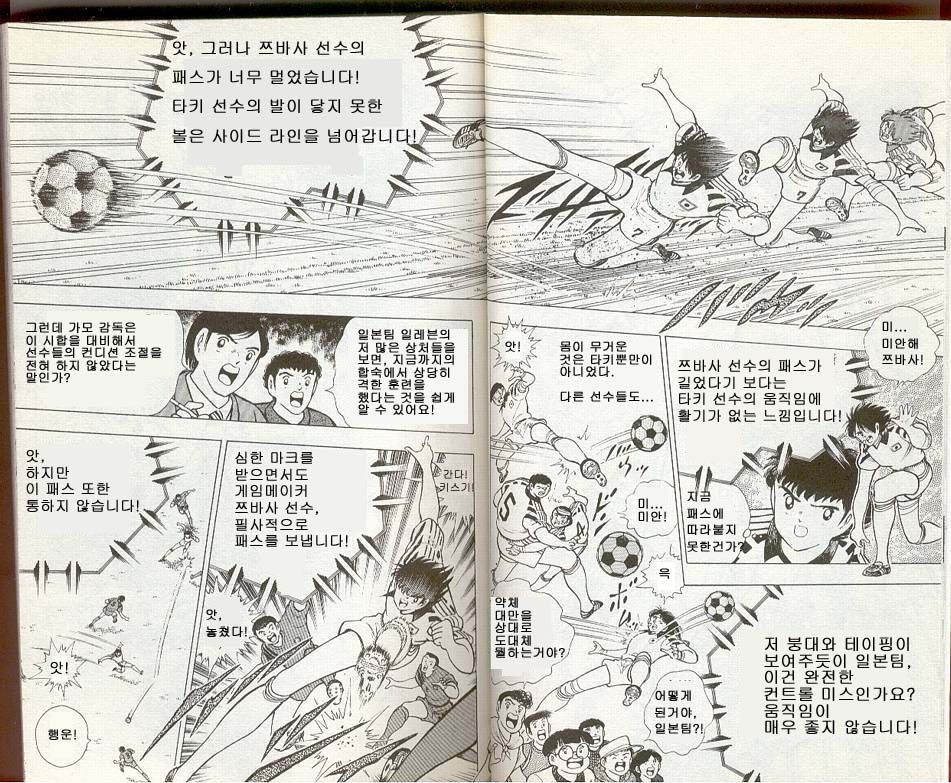 앗, 그러나 쯔바사 선수의
패스가 너무 멀었습니다!
타키 선수의 발이 닿지 못한
볼은 사이드 라인을 넘어갑니다!
7
7
미...
미안해
쯔바사!
쯔바사 선수의 패스가
길었다기 보다는
타키 선수의 움직임에
활기가 없는 느낌입니다!
지금
패스에
따라붙지
못한건가?
몸이 무거운
것은 타키뿐만이
아니었다.
다른 선수들도...
앗!
미...
미안!
윽
저 붕대와 테이핑이
보여주듯이 일본팀,
이건 완전한
컨트롤 미스인가요?
움직임이
매우 좋지 않습니다!
어떻게
된거야,
일본팀?!
약체
대만을
상대로
도대체
뭘하는거야?
일본팀 일레븐의
저 많은 상처들을
보면, 지금까지의
합숙에서 상당히
격한 훈련을
했다는 것을 쉽게
알 수 있어요!
그런데 가모 감독은
이 시합을 대비해서
선수들의 컨디션 조절을
전혀 하지 않았다는
말인가?
간다!
키스기!
심한 마크를
받으면서도
게임메이커
쯔바사 선수,
필사적으로
패스를 보냅니다!
앗,
놓쳤다!
앗,
하지만
이 패스 또한
통하지 않습니다!
앗!
행운!